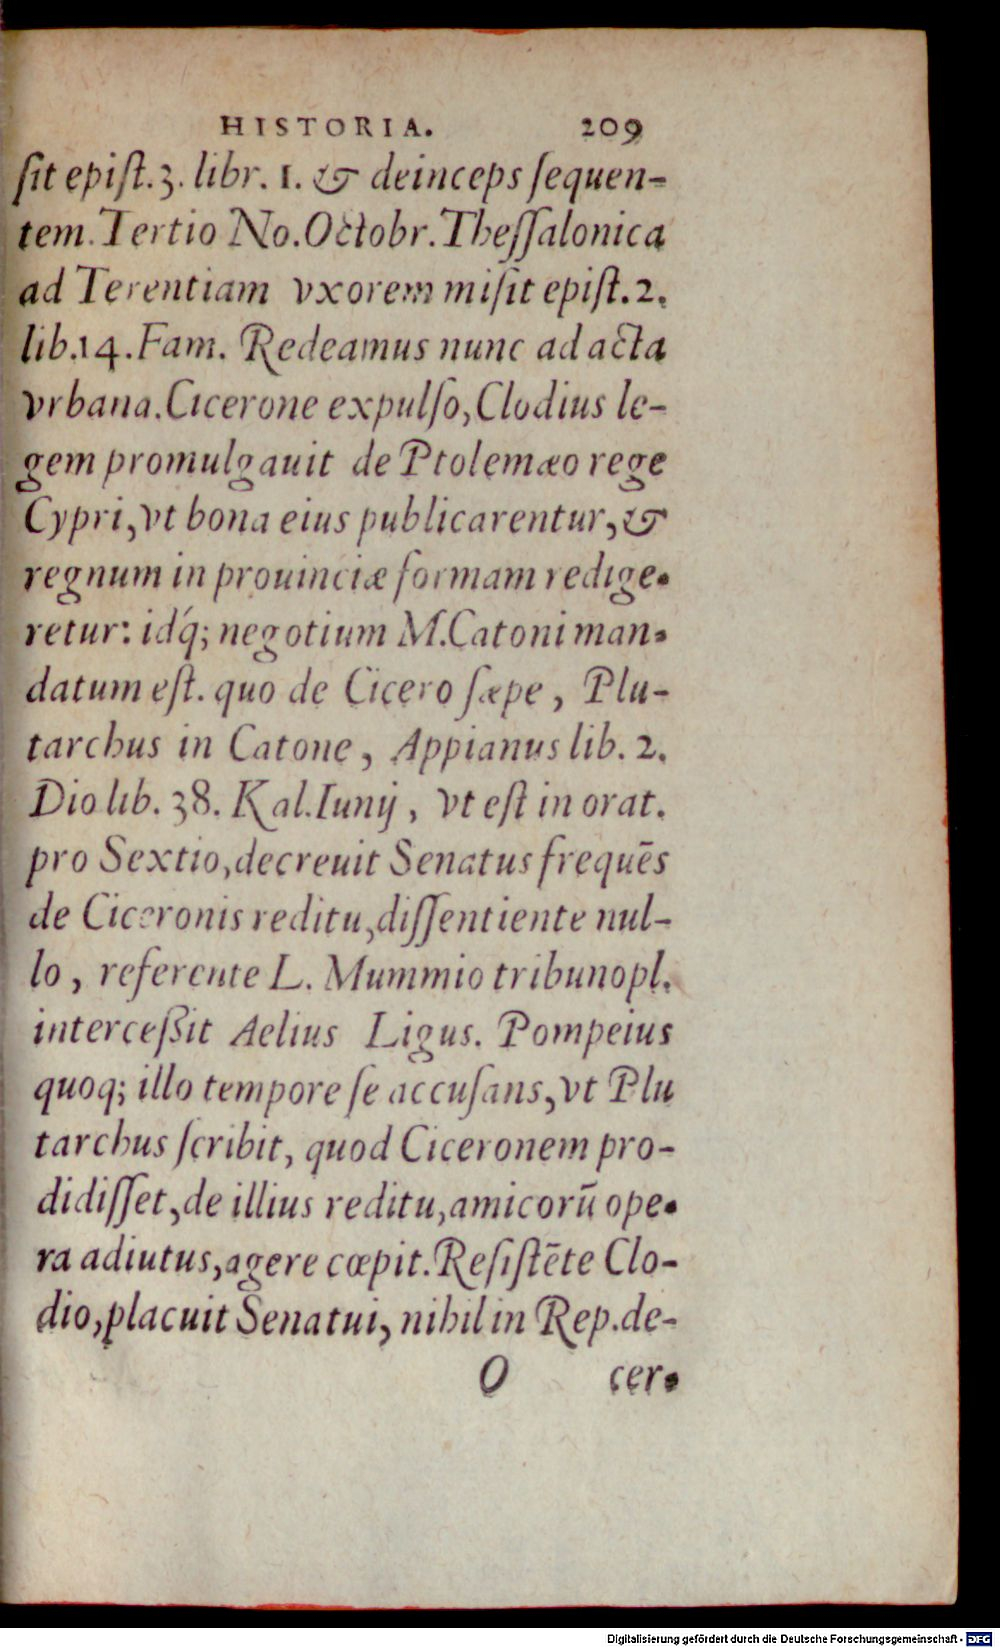 HISTORIA. 209
ſit epiſt. 3. libr. 1. & deinceps ſequen-
tem. Tertio No. Octobr. Theſſalonica
ad Terentiam vxorem miſit epiſt. 2.
lib. 14. Fam. Redeamus nunc ad acta
vrbana. Cicerone expulſo, Clodius le-
gem promulgauit de Ptolemæo rege
Cypri, vt bona eius publicarentur, &
regnum in prouinciæ formam redige-
retur: idq́; negotium M. Catoni man-
datum eſt. quo de Cicero ſæpe, Plu-
tarchus in Catone, Appianus lib. 2.
Dio lib. 38. Kal. Iunij, vt eſt in orat.
pro Sextio, decreuit Senatus frequẽs
de Ciceronis reditu, diſſentiente nul-
lo, referente L. Mummio tribuno pl.
interceßit Aelius Ligus. Pompeius
quoq; illo tempore ſe accuſans, vt Plu
tarchus ſcribit, quod Ciceronem pro-
didiſſet, de illius reditu, amicorũ ope-
ra adiutus, agere cœpit. Reſiſtẽte Clo-
dio, placuit Senatui, nihil in Rep. de-
O cer-
Digitalisierung gefördert durch die Deutsche Forschungsgemeinschaft - DFG